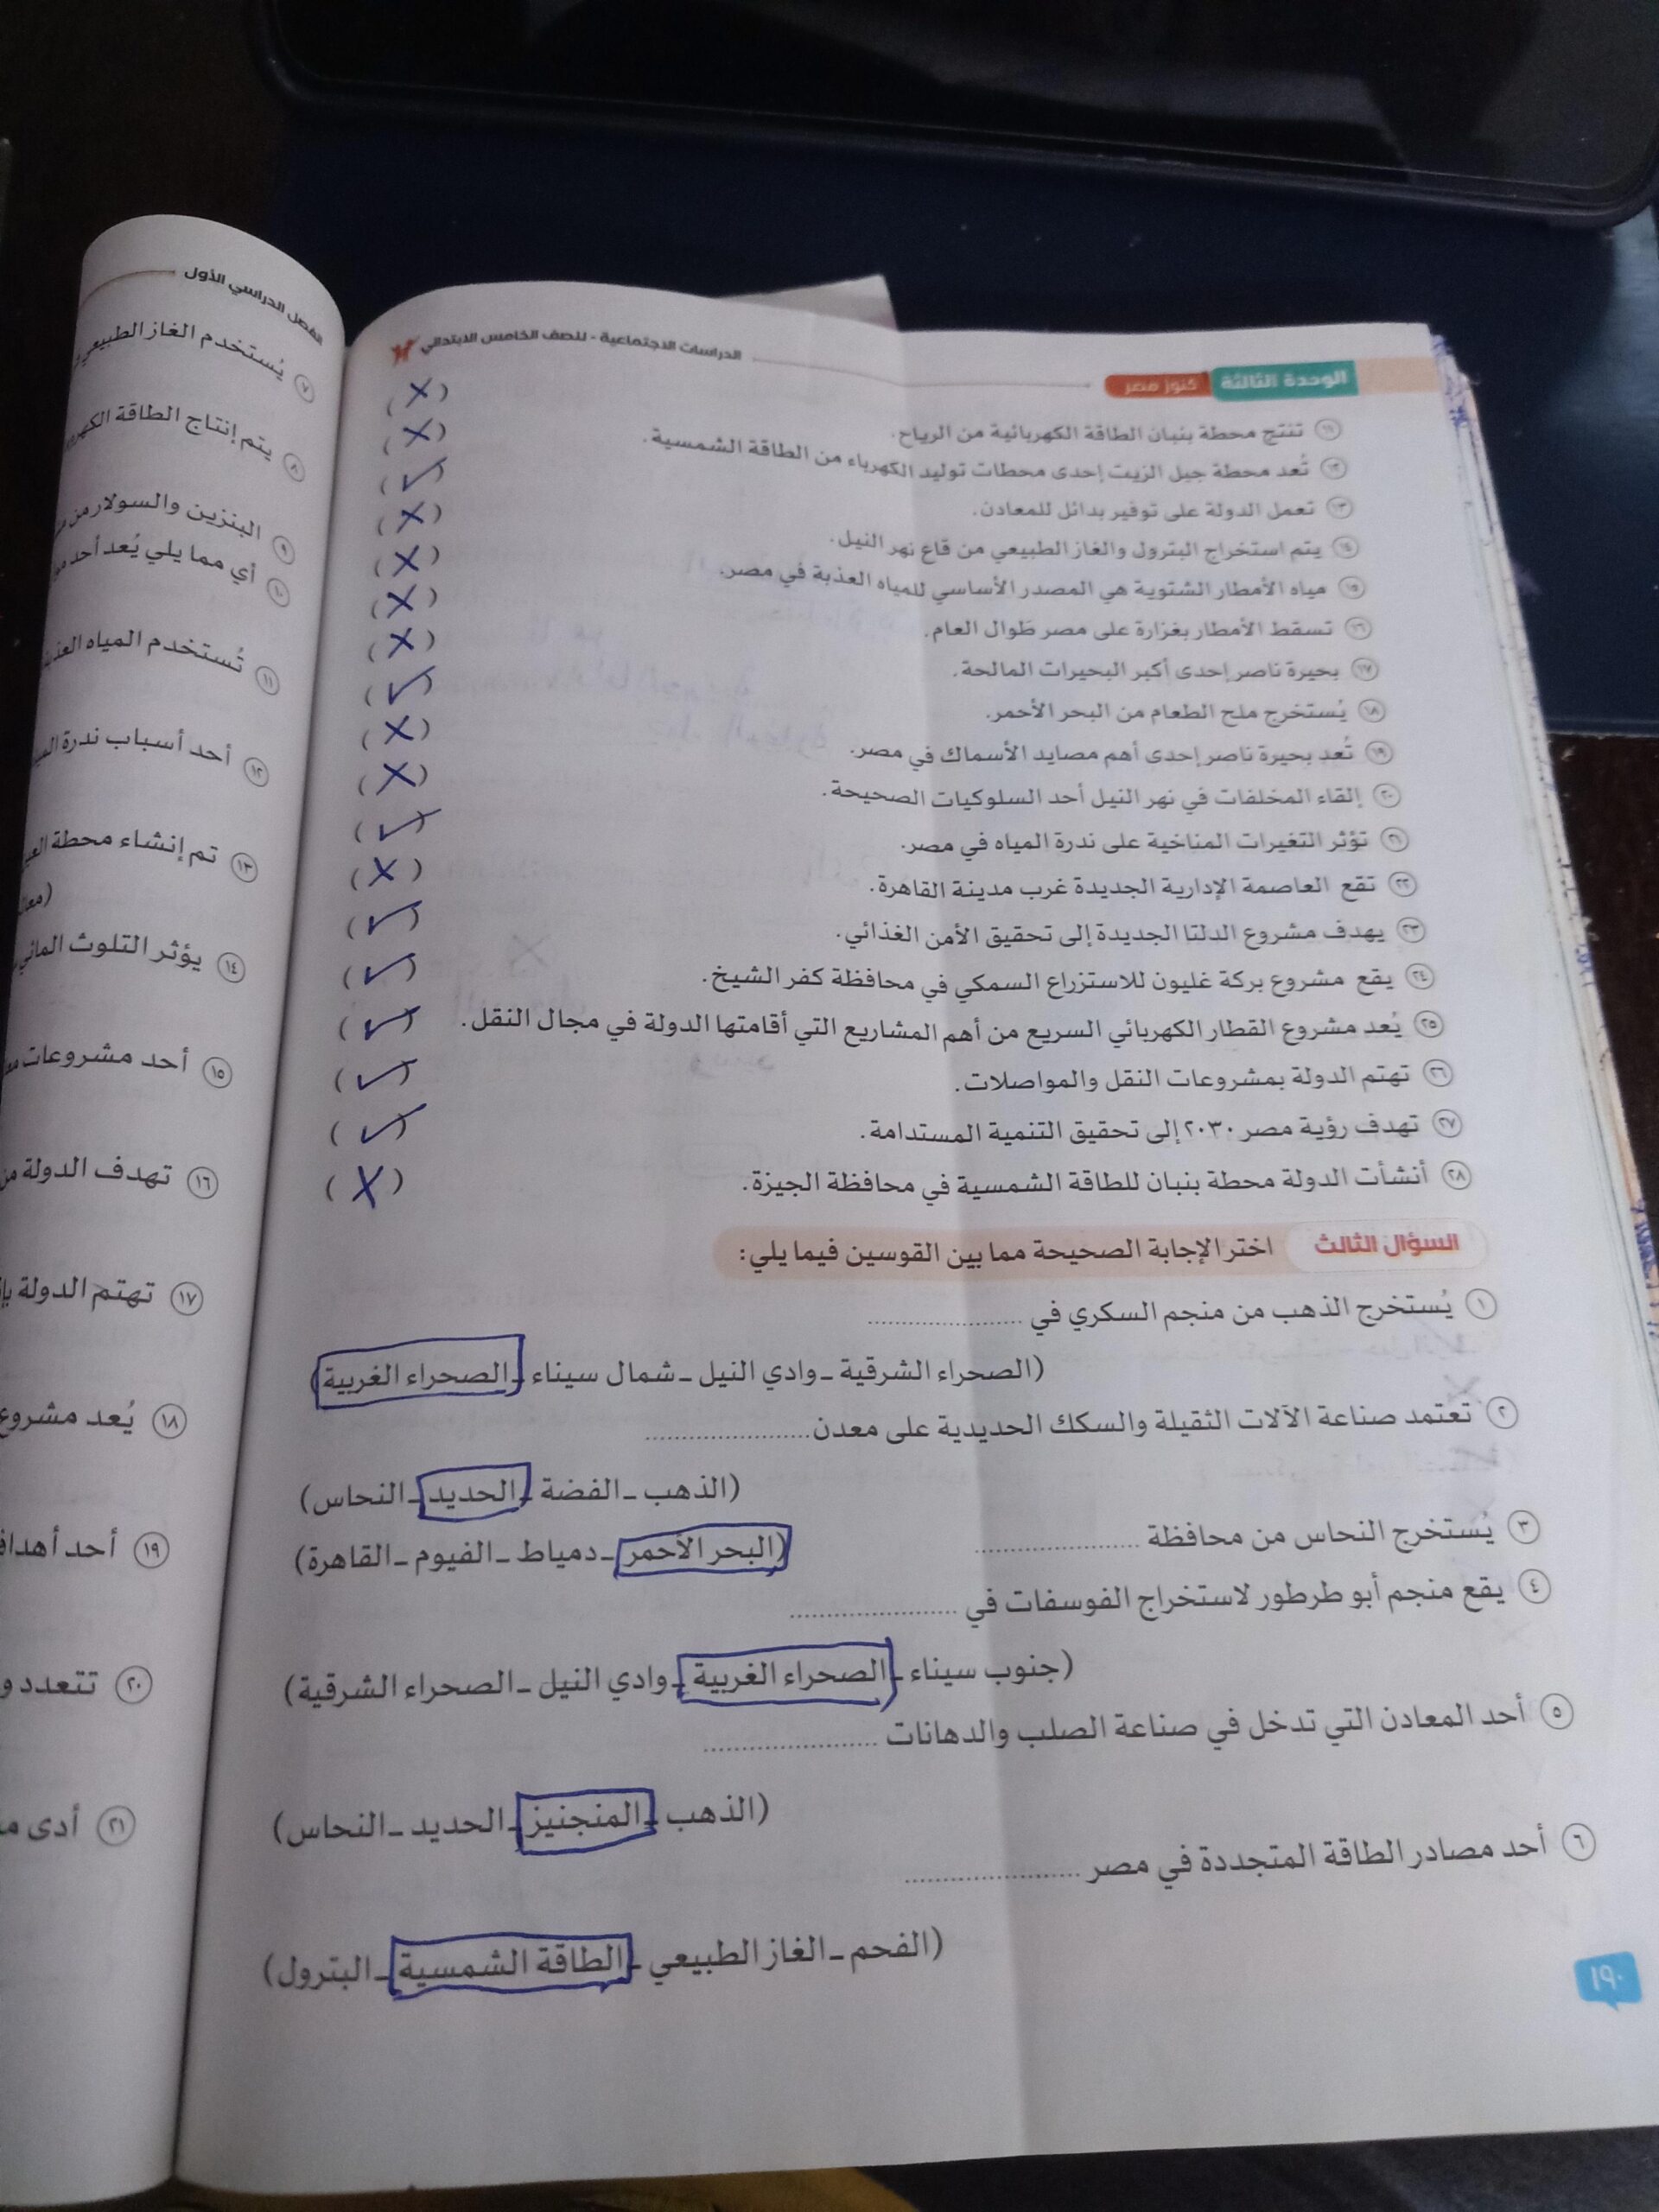 الدراسات الاجتماعية - للصف الخامس الابتدائي
الوحدة الثالثة كنوز مصر
١١ تنتج محطة بنبان الطاقة الكهربائية من الرياح. (✗)
١٢ تُعد محطة جبل الزيت إحدى محطات توليد الكهرباء من الطاقة الشمسية. (✗)
١٣ تعمل الدولة على توفير بدائل للمعادن. (✓)
١٤ يتم استخراج البترول والغاز الطبيعي من قاع نهر النيل. (✗)
١٥ مياه الأمطار الشتوية هي المصدر الأساسي للمياه العذبة في مصر. (✗)
١٦ تسقط الأمطار بغزارة على مصر طوال العام. (✗)
١٧ بحيرة ناصر إحدى أكبر البحيرات المالحة. (✗)
١٨ يُستخرج ملح الطعام من البحر الأحمر. (✓)
١٩ تُعد بحيرة ناصر إحدى أهم مصايد الأسماك في مصر. (✗)
٢٠ إلقاء المخلفات في نهر النيل أحد السلوكيات الصحيحة. (✗)
٢١ تؤثر التغيرات المناخية على ندرة المياه في مصر. (✓)
٢٢ تقع العاصمة الإدارية الجديدة غرب مدينة القاهرة. (✗)
٢٣ يهدف مشروع الدلتا الجديدة إلى تحقيق الأمن الغذائي. (✓)
٢٤ يقع مشروع بركة غليون للاستزراع السمكي في محافظة كفر الشيخ. (✓)
٢٥ يُعد مشروع القطار الكهربائي السريع من أهم المشاريع التي أقامتها الدولة في مجال النقل. (✓)
٢٦ تهتم الدولة بمشروعات النقل والمواصلات. (✓)
٢٧ تهدف رؤية مصر ٢٠٣٠ إلى تحقيق التنمية المستدامة. (✓)
٢٨ أنشأت الدولة محطة بنبان للطاقة الشمسية في محافظة الجيزة. (✗)
السؤال الثالث اختر الإجابة الصحيحة مما بين القوسين فيما يلي:
١ يُستخرج الذهب من منجم السكري في ....................
(الصحراء الشرقية ـ وادي النيل ـ شمال سيناء ـ الصحراء الغربية)
٢ تعتمد صناعة الآلات الثقيلة والسكك الحديدية على معدن....................
(الذهب ـ الفضة ـ الحديد ـ النحاس)
٣ يُستخرج النحاس من محافظة ....................
(البحر الأحمر ـ دمياط ـ الفيوم ـ القاهرة)
٤ يقع منجم أبو طرطور لاستخراج الفوسفات في ....................
(جنوب سيناء ـ الصحراء الغربية ـ وادي النيل ـ الصحراء الشرقية)
٥ أحد المعادن التي تدخل في صناعة الصلب والدهانات ....................
(الذهب ـ المنجنيز ـ الحديد ـ النحاس)
٦ أحد مصادر الطاقة المتجددة في مصر ....................
(الفحم ـ الغاز الطبيعي ـ الطاقة الشمسية ـ البترول)
١٩٠
الفصل الدراسي الأول
٧ يُستخدم الغاز الطبيعي
٨ يتم إنتاج الطاقة
٩ البنزين والسولار من
١٠ أي مما يلي يُعد أحد
١١ تُستخدم المياه
١٢ أحد أسباب ندرة
١٣ تم إنشاء محطة
١٤ يؤثر التلوث المائي
١٥ أحد مشروعات
١٦ تهدف الدولة من
١٧ تهتم الدولة
١٨ يُعد مشروع
١٩ أحد
٢٠ تتعدد
٢١ أدى